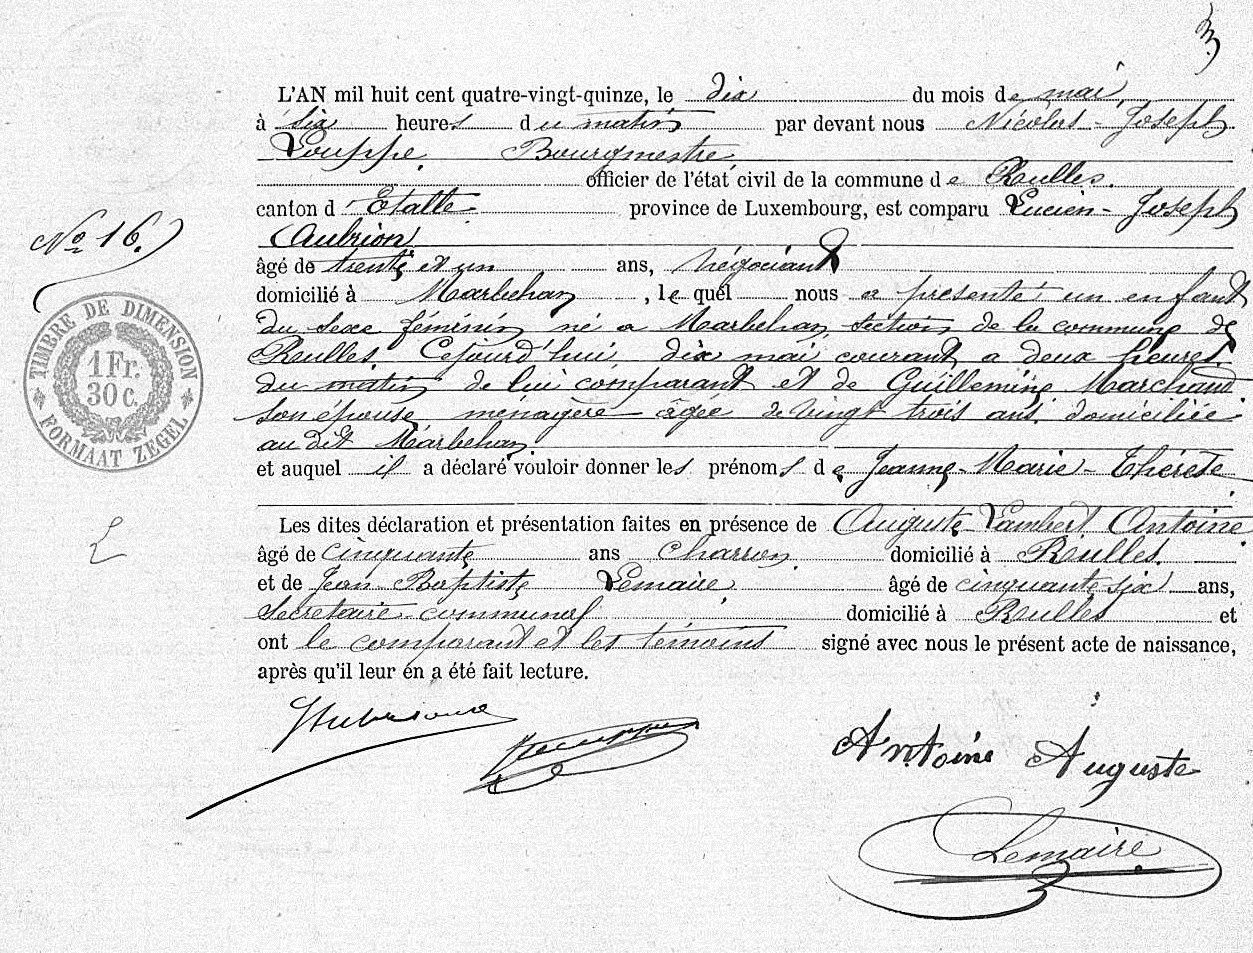 3
L'AN mil huit cent quatre-vingt-quinze, le dix du mois de mai,
à six heures du matin par devant nous Nicolas-Joseph
Louppe, Bourgmestre,
officier de l'état civil de la commune de Rulles.
canton d'Etalle province de Luxembourg, est comparu Lucien-Joseph
Nº 16.
Aubrion
âgé de trente et un ans, négociant
domicilié à Marbehan, lequel nous a présenté un enfant
du sexe féminin né a Marbehan section de la commune de
Rulles Cejourd'hui dix mai courant a deux heures
du matin de lui comparant et de Guillemine Marchand
son épouse ménagère âgée de vingt trois ans domiciliée
au dit Marbehan
TIMBRE DE DIMENSION
1 Fr.
30 c.
FORMAAT ZEGEL
et auquel il a déclaré vouloir donner les prénoms de Jeanne-Marie-Thérèse
Les dites déclaration et présentation faites en présence de Auguste Lambert Antoine
âgé de cinquante ans charron. domicilié à Rulles.
et de Jean Baptiste Lemaire, âgé de cinquante six ans,
Secrétaire communal domicilié à Rulles et
ont le comparant et les témoins signé avec nous le présent acte de naissance,
après qu'il leur en a été fait lecture.
Antoine Auguste
Lemaire